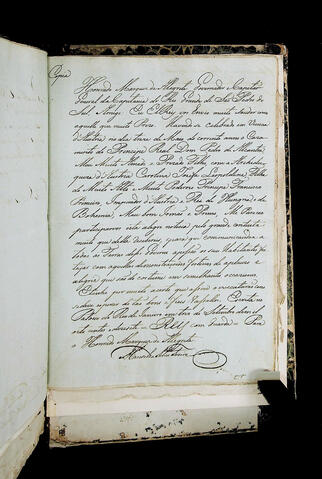 Copia
Honrado Marquez de Alegrete Governador e Capitão
General da Capitania do Rio Grande de São Pedro do
Sul Amigo. Eu ElRey vos Envio muito saudar como
aquelle que muito Prezo. Havendo-se Celebrado em Vienna
d'Austria no dia treze de Maio do corrente anno o Casa-
mento do Principe Real Dom Pedro de Alcantara
Meu Muito Amado e Prezado Filho, com a Archidu-
queza d'Austria Carolina Jozefa Leopoldina, Filha
do Muito Alto e Muito Poderoso Principe Francisco
Primeiro Imperador d'Austria, e Rei de Hungria, e de
Bohemia, Meu bom Irmão e Primo; Me Pareceo
participarvos esta alegre noticia pelo grande contentamento
que della recebereis, e para que communicando-a a
todas as Terras desse Governo os seus Habitantes fa-
ção com aquellas demonstrações festivas de applauso e
alegria que são de costume em semelhantes occasiões
bons e fieis Vassallos. Escrita no
Palacio do Rio de Janeiro em de Setembro de mil
oito centos e dezesete = REY = com guarda = Para
o Honrado Marquez de Alegrete